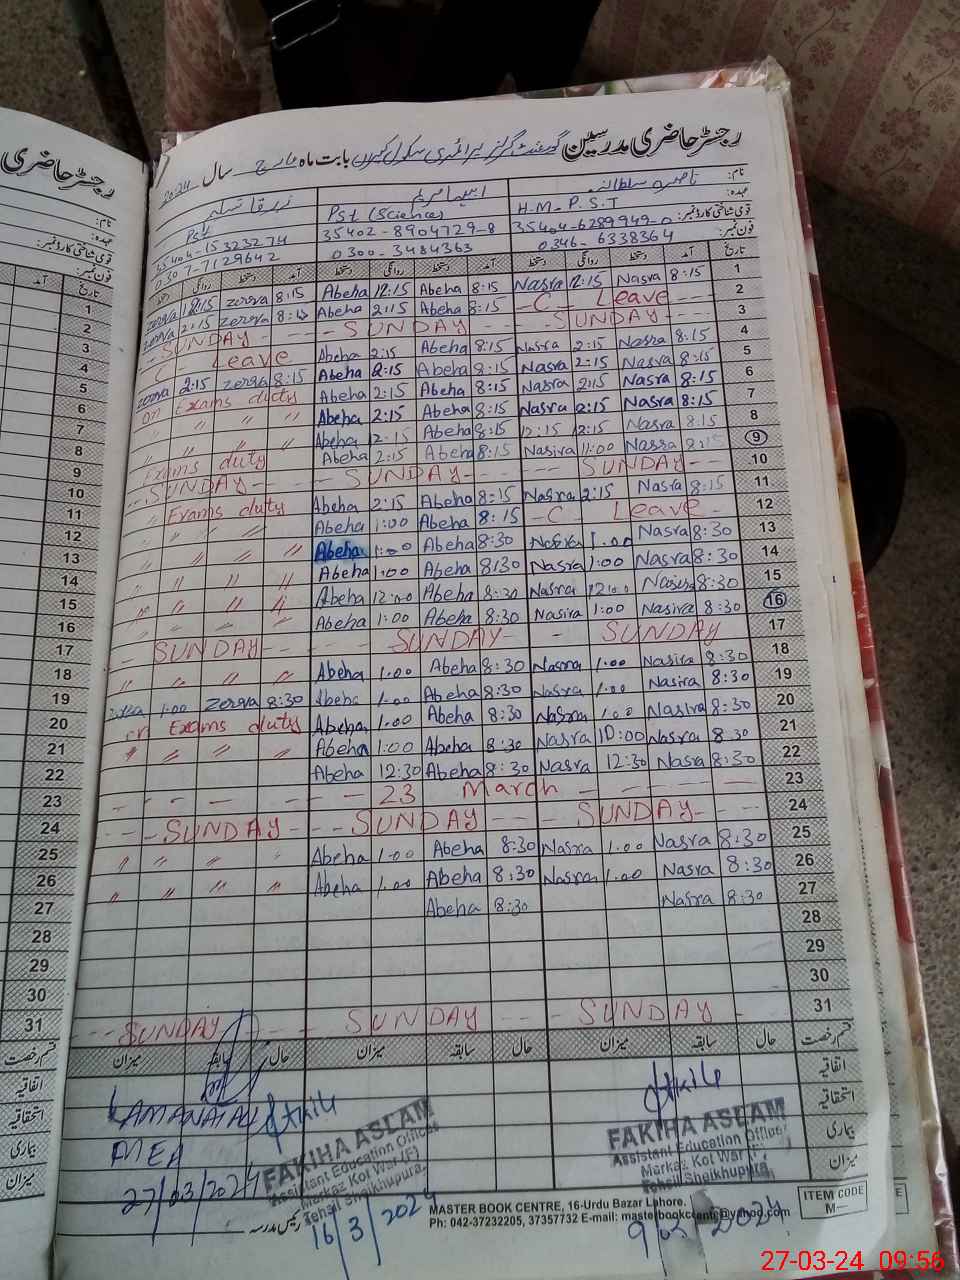 رجسٹر حاضری مدرسین گورنمنٹ گرلز پرائمری سکول بابت ماہ مارچ سال 2024
نام: ناصرہ سلطانہ
عہدہ: H-M-P.S.T Pst (Science) Pst
قومی شناختی کارڈ نمبر: 35404-6289949-0 35402-8904729-8 35404-15323274
فون نمبر: 0346-6338364 0300-3484363 0307-7129642
تاریخ آمد دستخط روانگی دستخط آمد دستخط روانگی دستخط آمد دستخط روانگی دستخط
1 8:15 Nasra 12:15 Nasra 8:15 Abeha 12:15 Abeha 8:15 zerva 12:15 zerva
2 C- Leave 8:15 Abeha 2:15 Abeha 8:15 zerva 2:15 zerva
3 SUNDAY SUNDAY SUNDAY
4 8:15 Nasra 2:15 Nasra 8:15 Abeha 2:15 Abeha C- Leave
5 8:15 Nasra 2:15 Nasra 8:15 Abeha 2:15 Abeha 8:15 zerva 2:15 zerva
6 8:15 Nasra 2:15 Nasra 8:15 Abeha 2:15 Abeha on Exams duty
7 8:15 Nasra 2:15 Nasra 8:15 Abeha 2:15 Abeha 〃 〃 〃 〃
8 8:15 Nasra 12:15 12:15 8:15 Abeha 12:15 Abeha 〃 〃 〃 〃
9 8:15 Nasra 11:00 Nasira 8:15 Abeha 2:15 Abeha Exams duty
10 SUNDAY SUNDAY SUNDAY
11 8:15 Nasra 2:15 Nasra 8:15 Abeha 2:15 Abeha Exams duty
12 C- Leave 8:15 Abeha 1:00 Abeha 〃 〃 〃
13 8:30 Nasra 1:00 Nasra 8:30 Abeha 1:00 Abeha 〃 〃 〃 〃
14 8:30 Nasra 1:00 Nasra 8:30 Abeha 1:00 Abeha 〃 〃 〃 〃
15 8:30 Nasira 12:00 Nasra 8:30 Abeha 12:00 Abeha 〃 〃 〃 〃
16 8:30 Nasira 1:00 Nasira 8:30 Abeha 1:00 Abeha 〃 〃 〃 〃
17 SUNDAY SUNDAY SUNDAY
18 8:30 Nasira 1:00 Nasra 8:30 Abeha 1:00 Abeha 〃 〃 〃 〃
19 8:30 Nasira 1:00 Nasra 8:30 Abeha 1:00 Abeha 8:30 zerva 1:00
20 8:30 Nasira 1:00 Nasra 8:30 Abeha 1:00 Abeha on Exams duty
21 8:30 Nasra 10:00 Nasra 8:30 Abeha 1:00 Abeha 〃 〃 〃 〃
22 8:30 Nasra 12:30 Nasra 8:30 Abeha 12:30 Abeha
23 23 March
24 SUNDAY SUNDAY SUNDAY
25 8:30 Nasra 1:00 Nasra 8:30 Abeha 1:00 Abeha 〃 〃 〃 〃
26 8:30 Nasra 1:00 Nasra 8:30 Abeha 1:00 Abeha 〃 〃 〃 〃
27 8:30 Nasra 8:30 Abeha
28
29
30
31 SUNDAY SUNDAY SUNDAY
قسم رخصت حال سابقہ میزان حال سابقہ میزان حال سابقہ میزان
اتفاقیہ
استحقاقیہ
بیماری
میزان
MEA
27/03/2024
FAKIHA ASLAM
Assistant Education Officer
Markaz Kot War (F)
Tehsil Sheikhupura
16/3/2024
FAKIHA ASLAM
Assistant Education Officer
Markaz Kot War
Tehsil Sheikhupura
رئیس مدرسہ
MASTER BOOK CENTRE, 16-Urdu Bazar Lahore.
Ph: 042-37232205, 37357732 E-mail: masterbookcentre@yahoo.com
ITEM CODE
M—
رجسٹر حاضری
نام:
عہدہ:
قومی شناختی کارڈ نمبر:
فون نمبر:
تاریخ آمد
1
2
3
4
5
6
7
8
9
10
11
12
13
14
15
16
17
18
19
20
21
22
23
24
25
26
27
28
29
30
31
قسم رخصت
اتفاقیہ
استحقاقیہ
بیماری
میزان
27-03-24 09:56